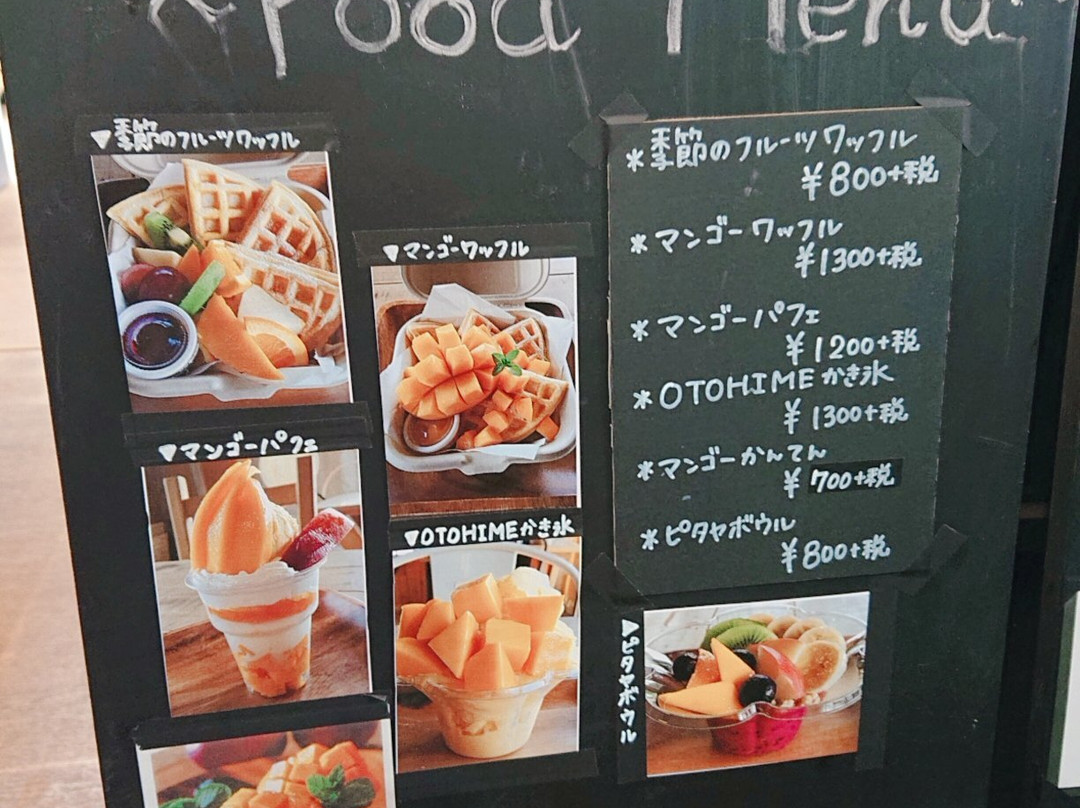 Food Menu
▼季節のフルーツワッフル
▼マンゴーワッフル
▼マンゴーパフェ
▼OTOHIMEかき氷
▼ピタヤボウル
*季節のフルーツワッフル
¥800+税
*マンゴーワッフル
¥1300+税
*マンゴーパフェ
¥1200+税
*OTOHIMEかき氷
¥1300+税
*マンゴーかんてん
¥700+税
*ピタヤボウル
¥800+税